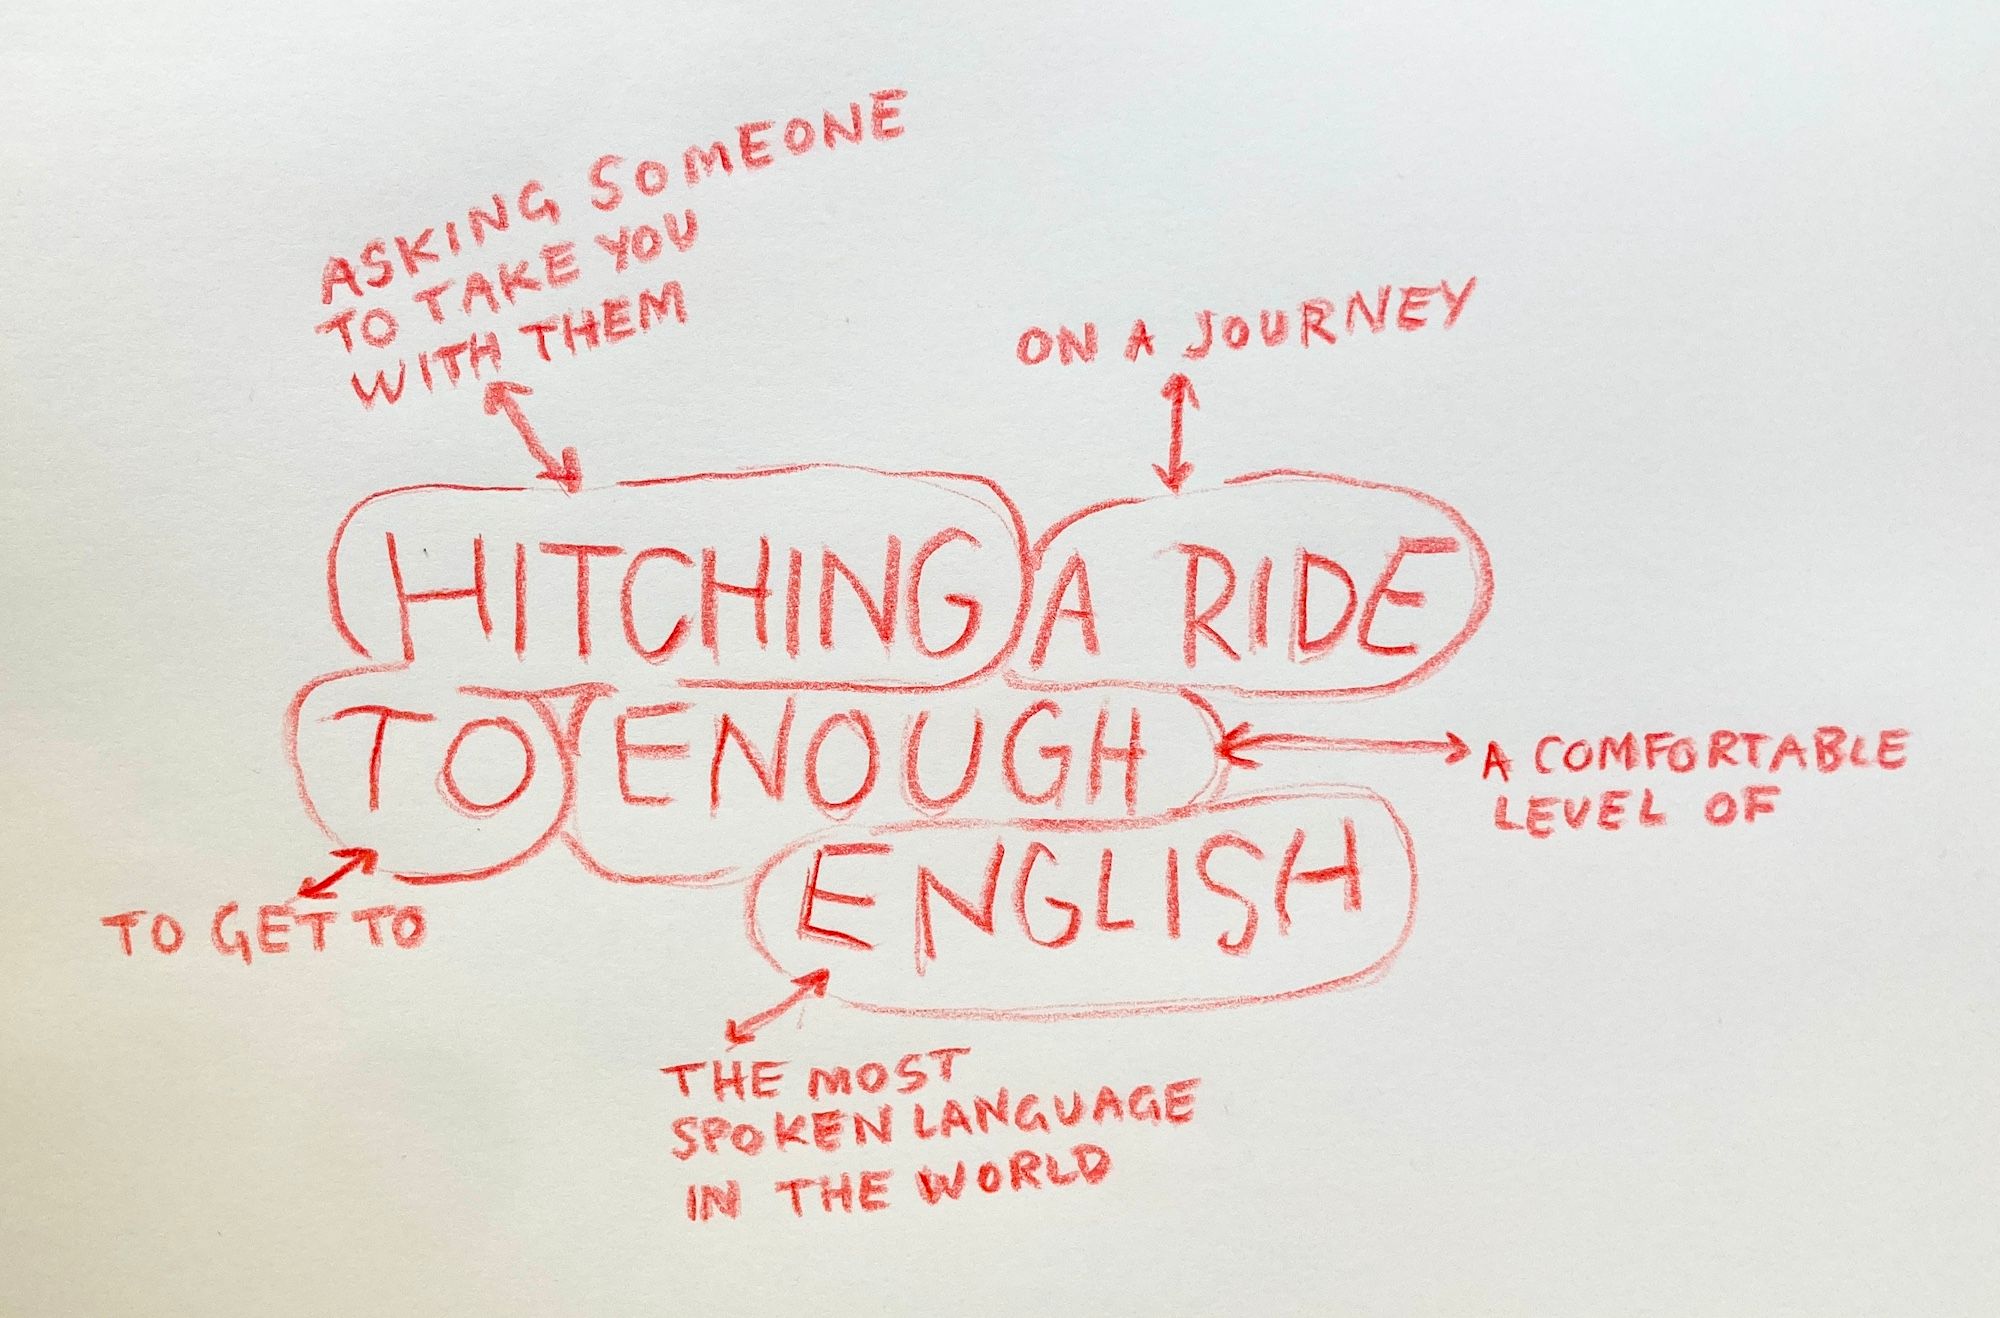 ASKING SOMEONE
TO TAKE YOU
WITH THEM
ON A JOURNEY
HITCHING A RIDE
TO ENOUGH
A COMFORTABLE
LEVEL OF
ENGLISH
TO GET TO
THE MOST
SPOKEN LANGUAGE
IN THE WORLD